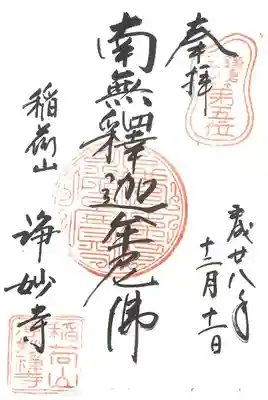 奉拝
第五位
平成廿八年
十二月十一日
南無釋迦牟尼佛
稲荷山
淨妙寺
稲荷山